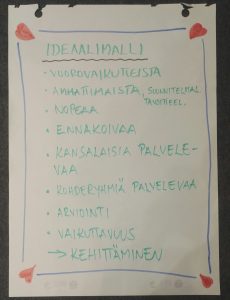 IDEAALIMALLI
• VUOROVAIKUTTEISTA
• AMMATTIMAISTA, SUUNNITELMAL.
TAVOITTEEL.
• NOPEAA
• ENNAKOIVAA
• KANSALAISIA PALVELE-
VAA
• KOHDERYHMIÄ PALVELEVAA
• ARVIOINTI
• VAIKUTTAVUUS
→ KEHITTÄMINEN